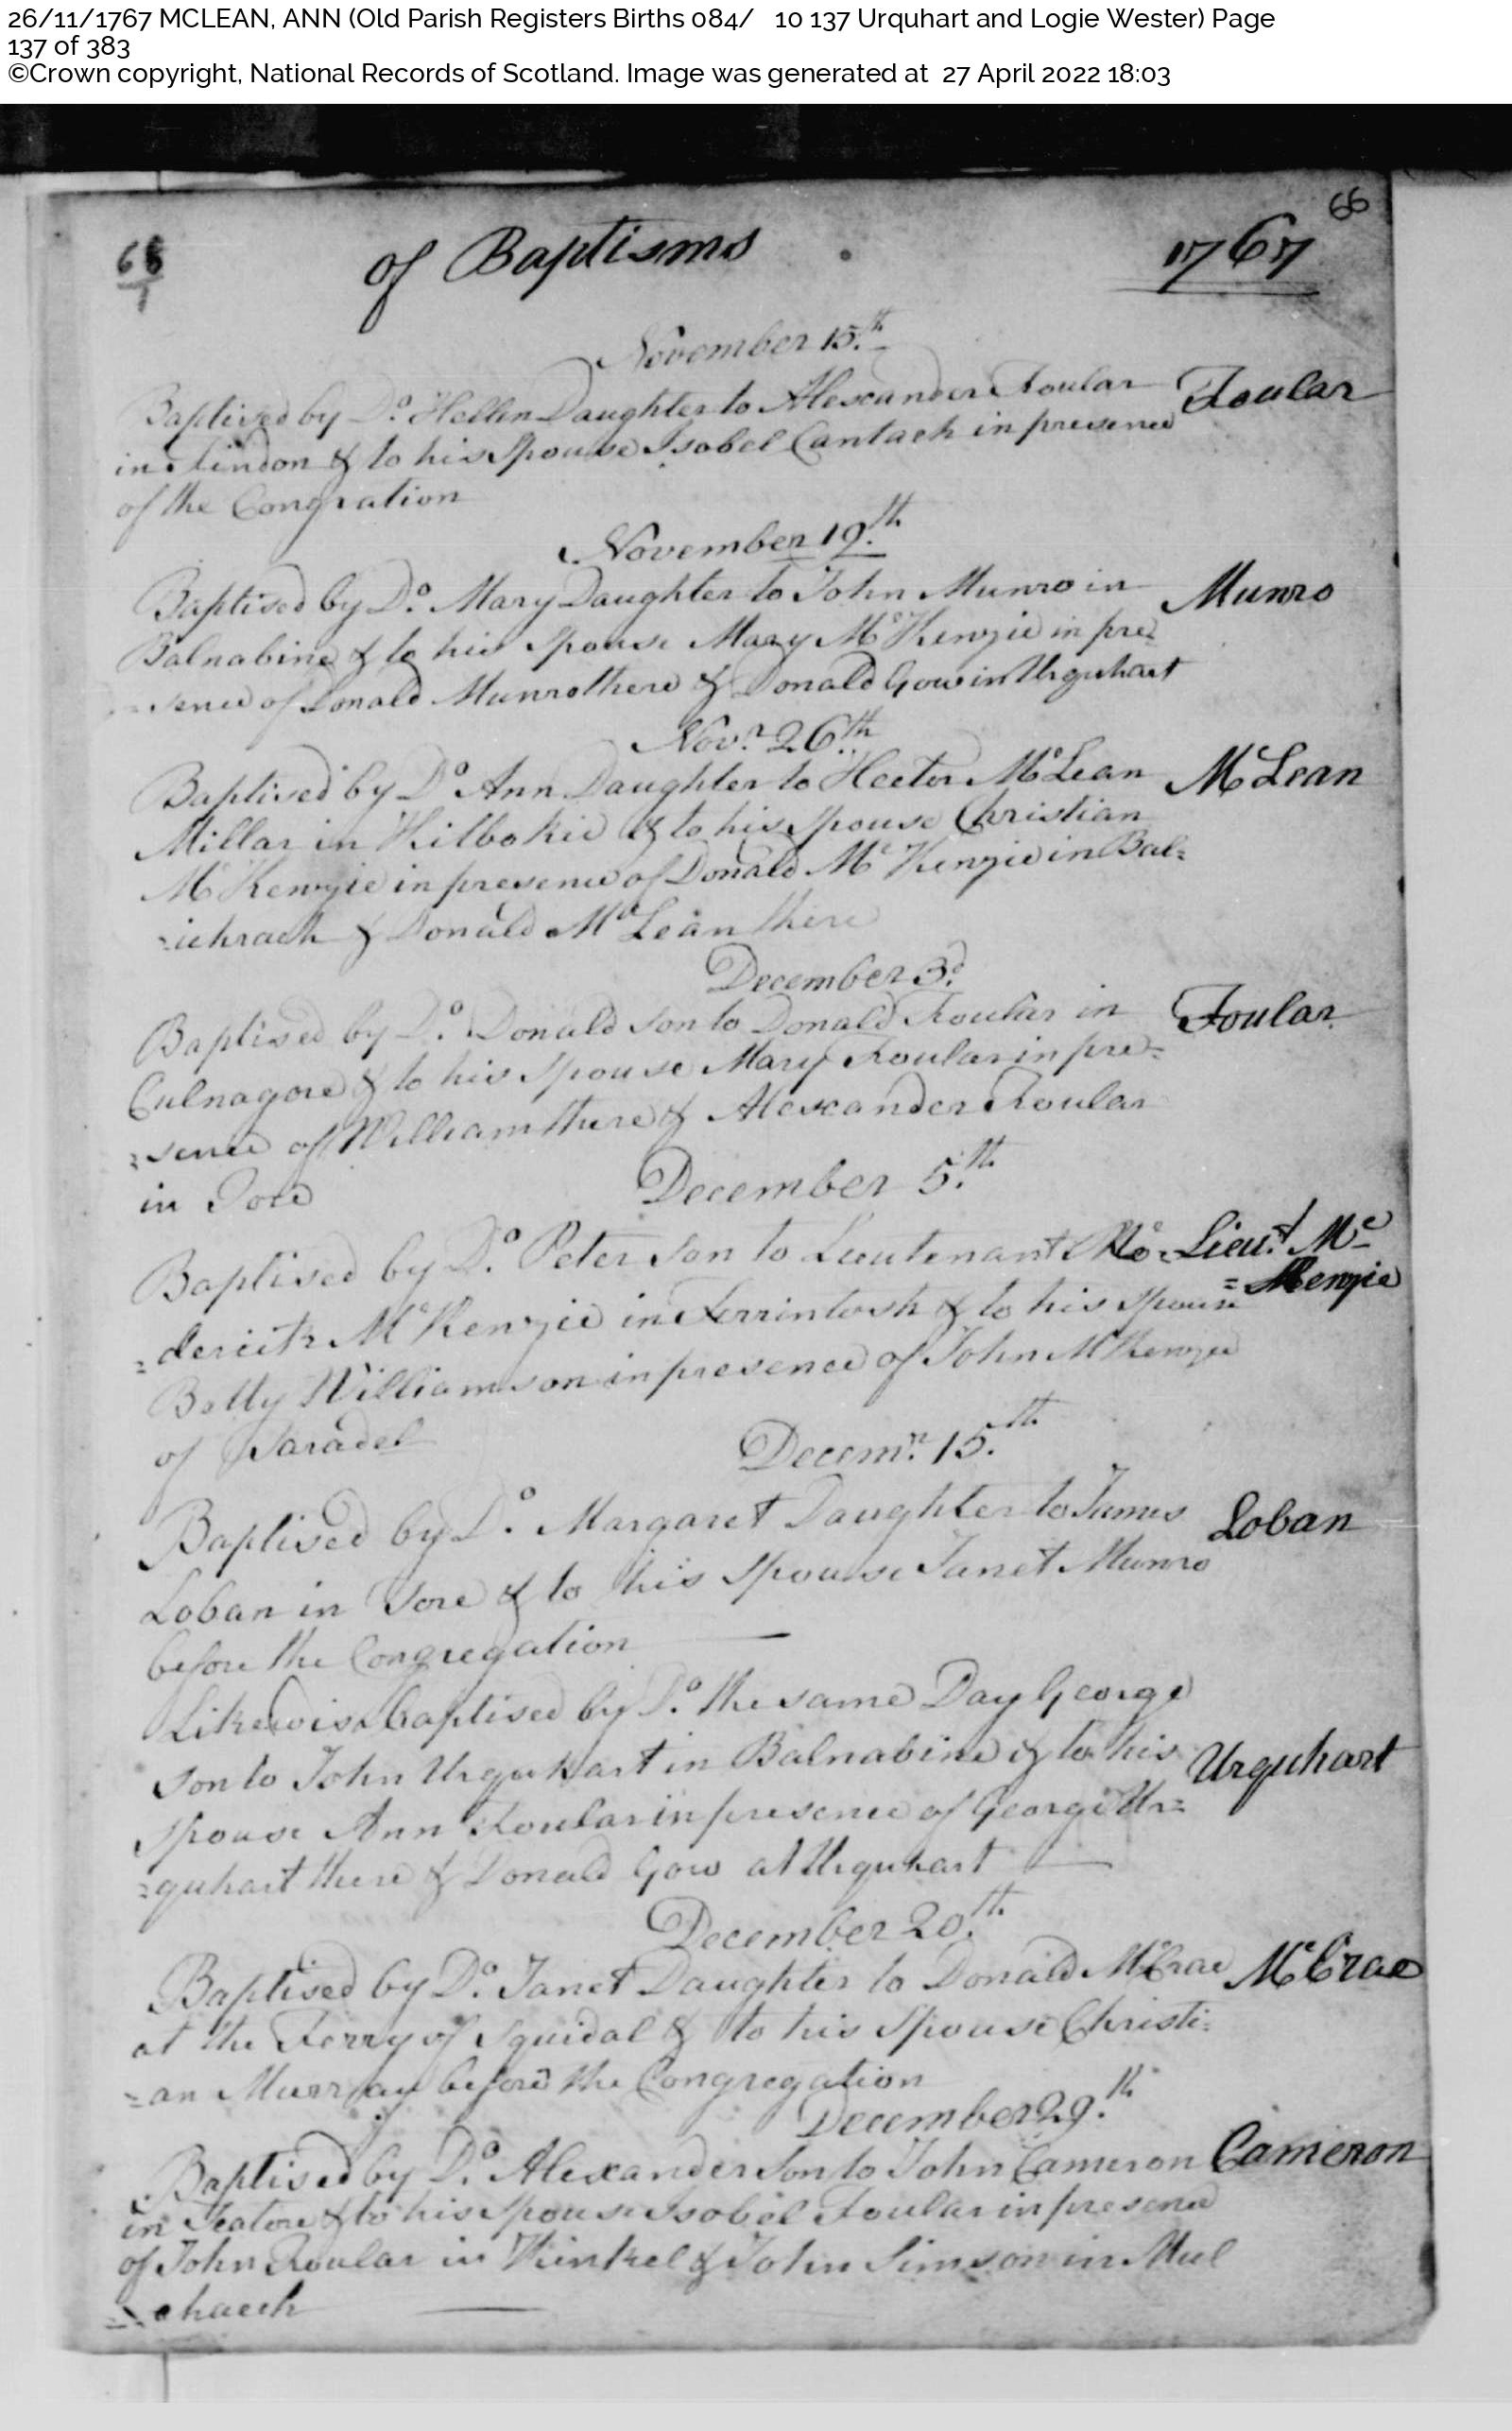 26/11/1767 MCLEAN, ANN (Old Parish Registers Births 084/ 10 137 Urquhart and Logie Wester) Page
137 of 383
©Crown copyright, National Records of Scotland. Image was generated at 27 April 2022 18:03
66
of Baptisms . 1767
November 15.th
Baptised by Do. Hellen Daughter to Alexander Foular Foular
in Findon & to his Spouse Isobel Cantach in presence
of the Congration
November 19.th
Baptised by Do. Mary Daughter to John Munro in Munro
Balnabine & to his Spouse Mary McKenzie in pre=
sence of Donald Munro there & Donald Gow in Urquhart
Novr. 26th
Baptised by Do Ann Daughter to Hector McLean McLean
Millar in Kilbokie & to his Spouse Christian
McKenzie in presence of Donald McKenzie in Bal=
=ichrach & Donald McLean there
December 3d
Baptised by Do. Donald Son to Donald Foular in Foular
Culnagore & to his Spouse Mary Foular in pre=
=sence of William there & Alexander Foular
in Tore
December 5.th
Baptised by Do. Peter Son to Lieutenant Ro= Lieut. Mc
=derick McKenzie in Ferrintosh & to his Spouse =Kenzie
Betty Williamson in presence of John McKenzie
of
Decemr. 15.th
Baptised by Do. Margaret Daughter to James Loban
Loban in Tore & to his Spouse Janet Munro
before the Congregation
Likewise baptised by Do. the same Day George
Son to John Urquhart in Balnabine & to his Urquhart
Spouse Ann Foular in presence of George Ur=
=quhart there & Donald Gow at Urquhart
December 20.th
Baptised by Do. Janet Daughter to Donald McCrae McCrae
at the Ferry of Squidal & to his Spouse Christi=
=an Murray before the Congregation
December 29.th
Baptised by Do. Alexander Son to John Cameron Cameron
in & to his Spouse Isobel Foular in presence
of John Foular in Kinkel & John Simson in Mul
=chaich